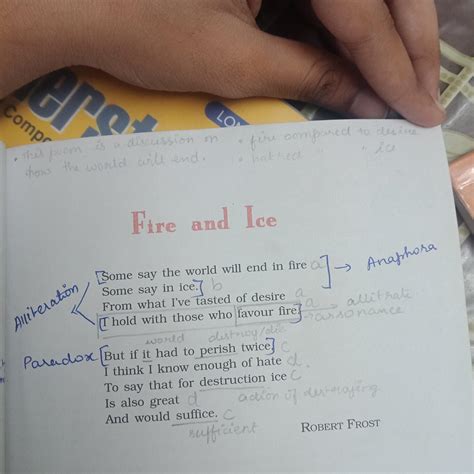 erst
Compo
LO
• This poem is a discussion on
how the world will end.
• fire compared to desire
• hatred " " Ice
Fire and Ice
Alliteration
Some say the world will end in fire a → Anaphora
Some say in ice. b
From what I've tasted of desire a
I hold with those who favour fire. a → allitrate
→ assonance
world destroy/die
Paradox
But if it had to perish twice, c
I think I know enough of hate d
To say that for destruction ice c
Is also great d action of destroying
And would suffice. c
sufficient
ROBERT FROST